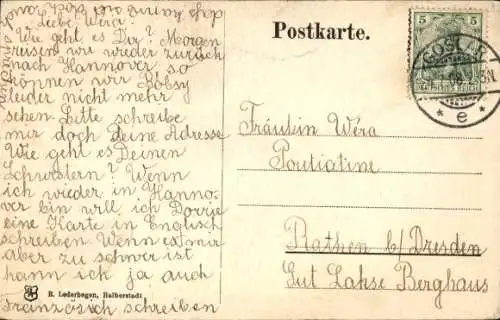 Postkarte.
Liebe Wera!
Wie geht es Dir? Morgen
reisen wir wieder zurück
nach Hannover so
können wir Bobsy
leider nicht mehr
sehen. Bitte schreibe
mir doch Deine Adresse
Wie geht es Deinen
Schwestern? Wenn
ich wieder in Hanno-
ver bin will ich Dorrie
eine Karte in Englisch
schreiben Wenn es mir
aber zu schwer ist
kann ich ja auch
Französisch schreiben
Fräulein Wéra
Poutiatine
Rathen b/Dresden
Gut Lahse Berghaus
5 5
GOSLAR
* e *
R. Lederbogen, Halberstadt